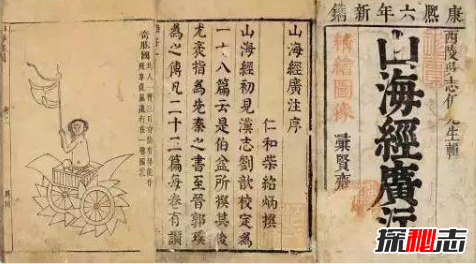 康熙六年新鐫
西陵吳志伊先生輯
精繪圖像
山海經廣注
彙賢齋
山海經廣注序
仁和柴紹炳撰
山海經初見漢志劉歆校定為
一十八篇云是伯益所撰其後
尤袤指為先秦之書至晉郭璞
為之傳凡二十二篇每卷有讚
奇肱國
探秘志